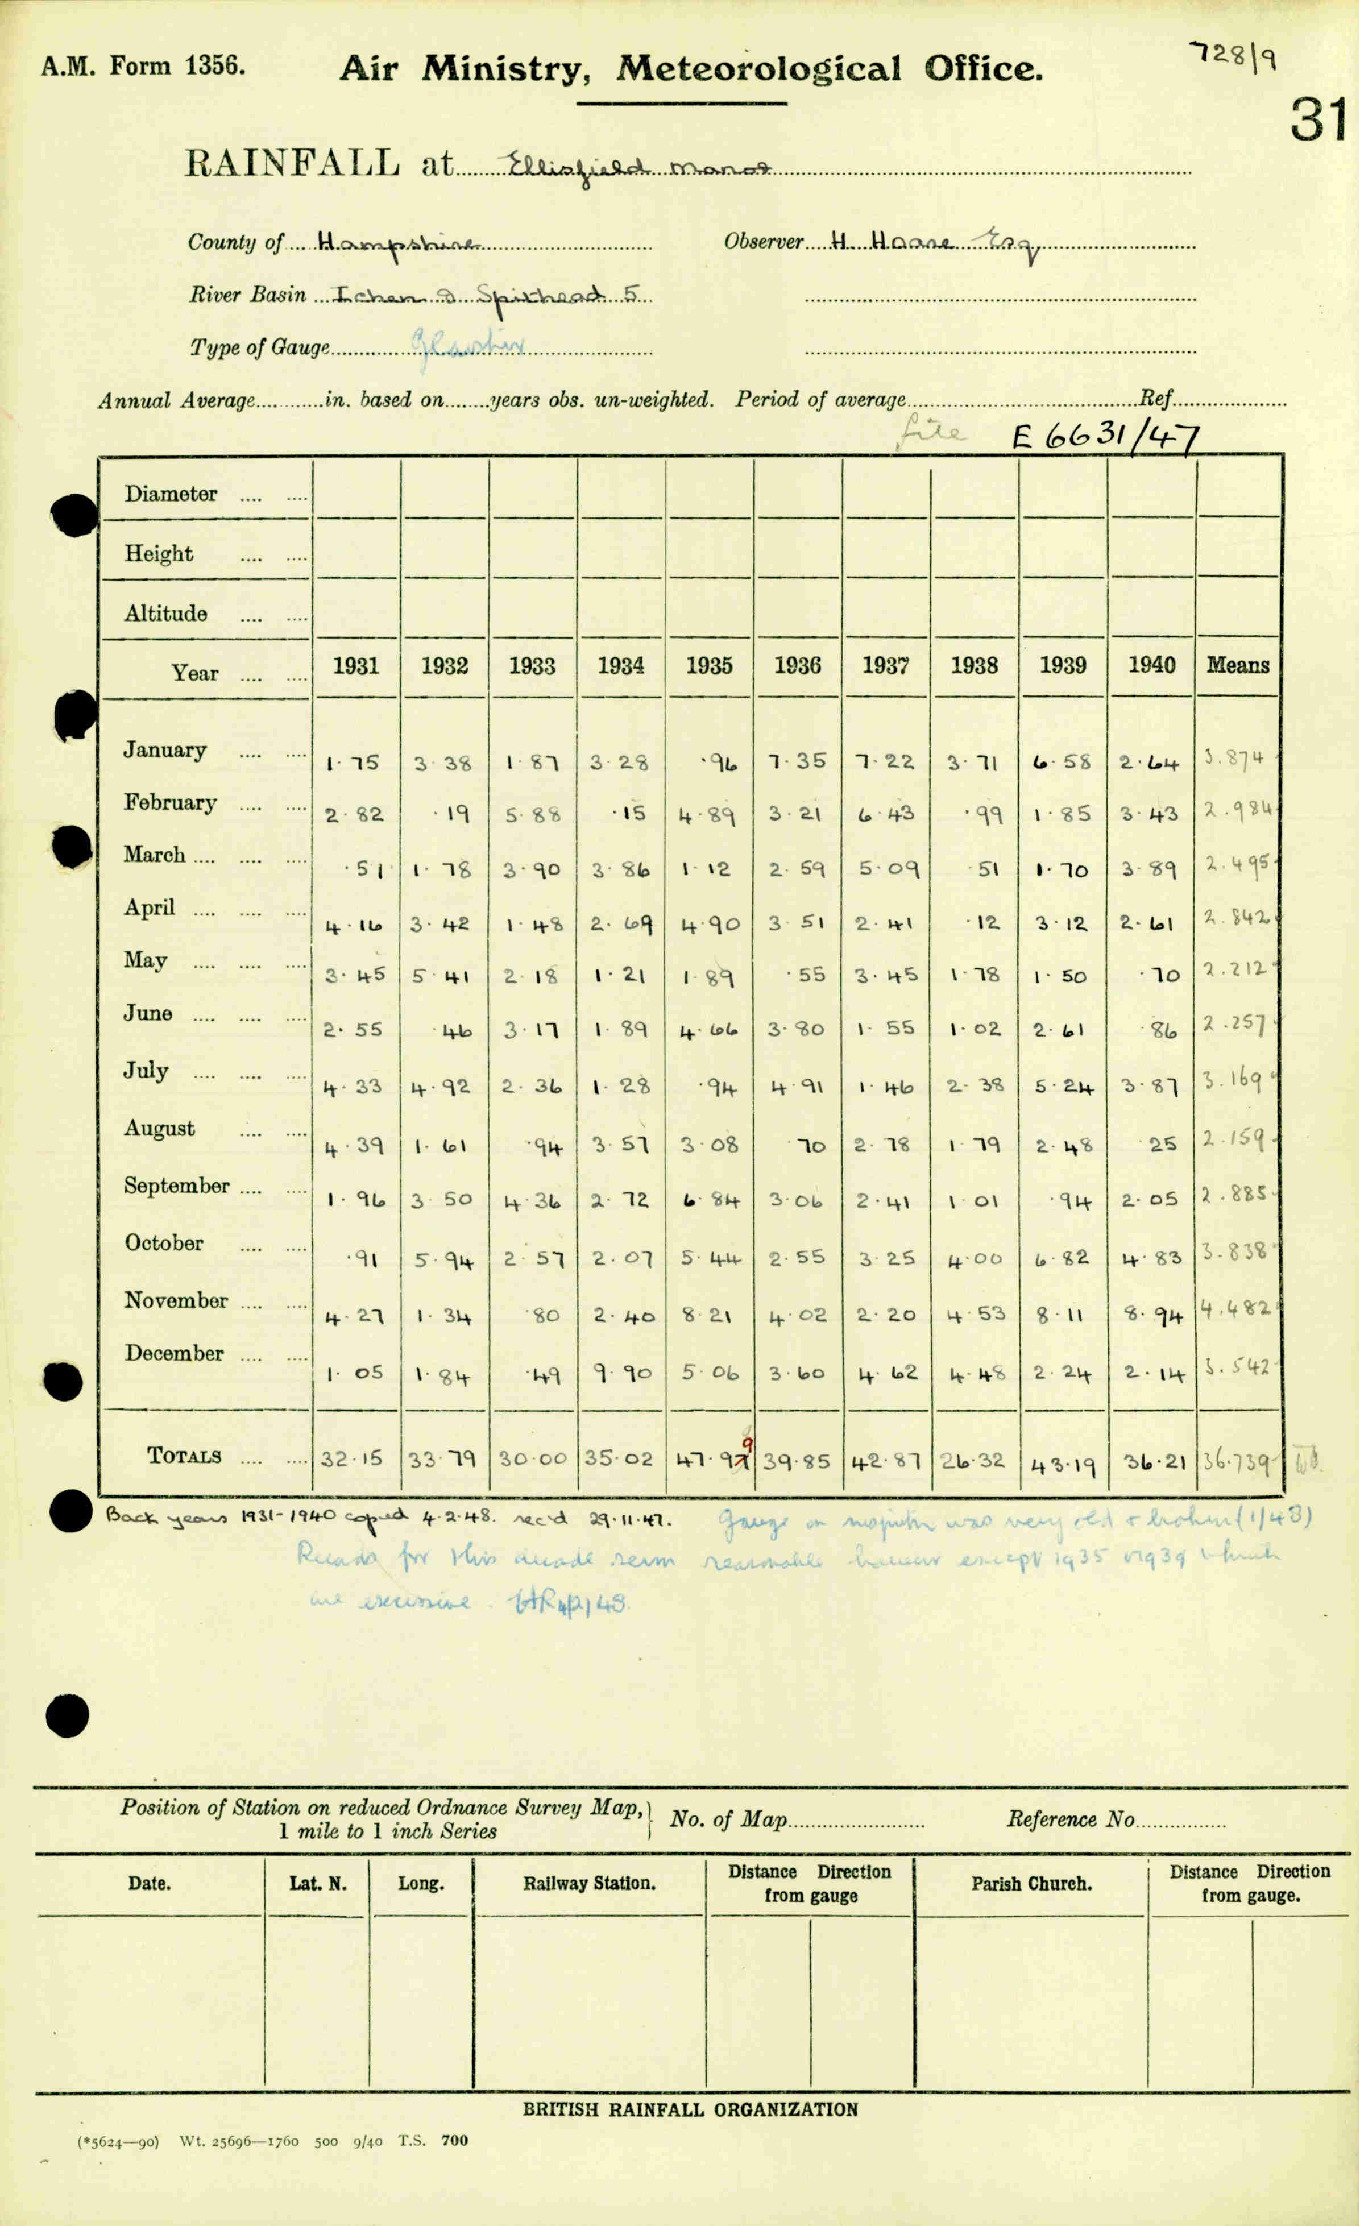 A.M. Form 1356.
Air Ministry, Meteorological Office.
728/9
31
RAINFALL at Ellisfield Manor
County of Hampshire Observer H Hoare Esq
River Basin Ichen & Spithead 5
Type of Gauge Glaisher
Annual Average in. based on years obs. un-weighted. Period of average Ref.
file E 6631/47
Diameter
Height
Altitude
Year 1931 1932 1933 1934 1935 1936 1937 1938 1939 1940 Means
January 1.75 3.38 1.87 3.28 .96 7.35 7.22 3.71 6.58 2.64 3.874
February 2.82 .19 5.88 .15 4.89 3.21 6.43 .99 1.85 3.43 2.984
March .51 1.78 3.90 3.86 1.12 2.59 5.09 .51 1.70 3.89 2.495
April 4.16 3.42 1.48 2.69 4.90 3.51 2.41 .12 3.12 2.61 2.842
May 3.45 5.41 2.18 1.21 1.89 .55 3.45 1.78 1.50 .70 2.212
June 2.55 .46 3.17 1.89 4.66 3.80 1.55 1.02 2.61 .86 2.257
July 4.33 4.92 2.36 1.28 .94 4.91 1.46 2.38 5.24 3.87 3.169
August 4.39 1.61 .94 3.57 3.08 .70 2.78 1.79 2.48 .25 2.159
September 1.96 3.50 4.36 2.72 6.84 3.06 2.41 1.01 .94 2.05 2.885
October .91 5.94 2.57 2.07 5.44 2.55 3.25 4.00 6.82 4.83 3.838
November 4.27 1.34 .80 2.40 8.21 4.02 2.20 4.53 8.11 8.94 4.482
December 1.05 1.84 .49 9.90 5.06 3.60 4.62 4.48 2.24 2.14 3.542
TOTALS 32.15 33.79 30.00 35.02 47.99 39.85 42.87 26.32 43.19 36.21 36.739
Back years 1931-1940 copied 4.2.48. rec'd 29.11.47. Gauge on was very old & broken (1/48)
Records for this decade seem reasonable however except 1935 & 1939 which
are excessive.
Position of Station on reduced Ordnance Survey Map, No. of Map Reference No.
1 mile to 1 inch Series
Date. Lat. N. Long. Railway Station. Distance Direction from gauge Parish Church. Distance Direction from gauge.
BRITISH RAINFALL ORGANIZATION
(*5624—90) Wt. 25696—1760 500 9/40 T.S. 700